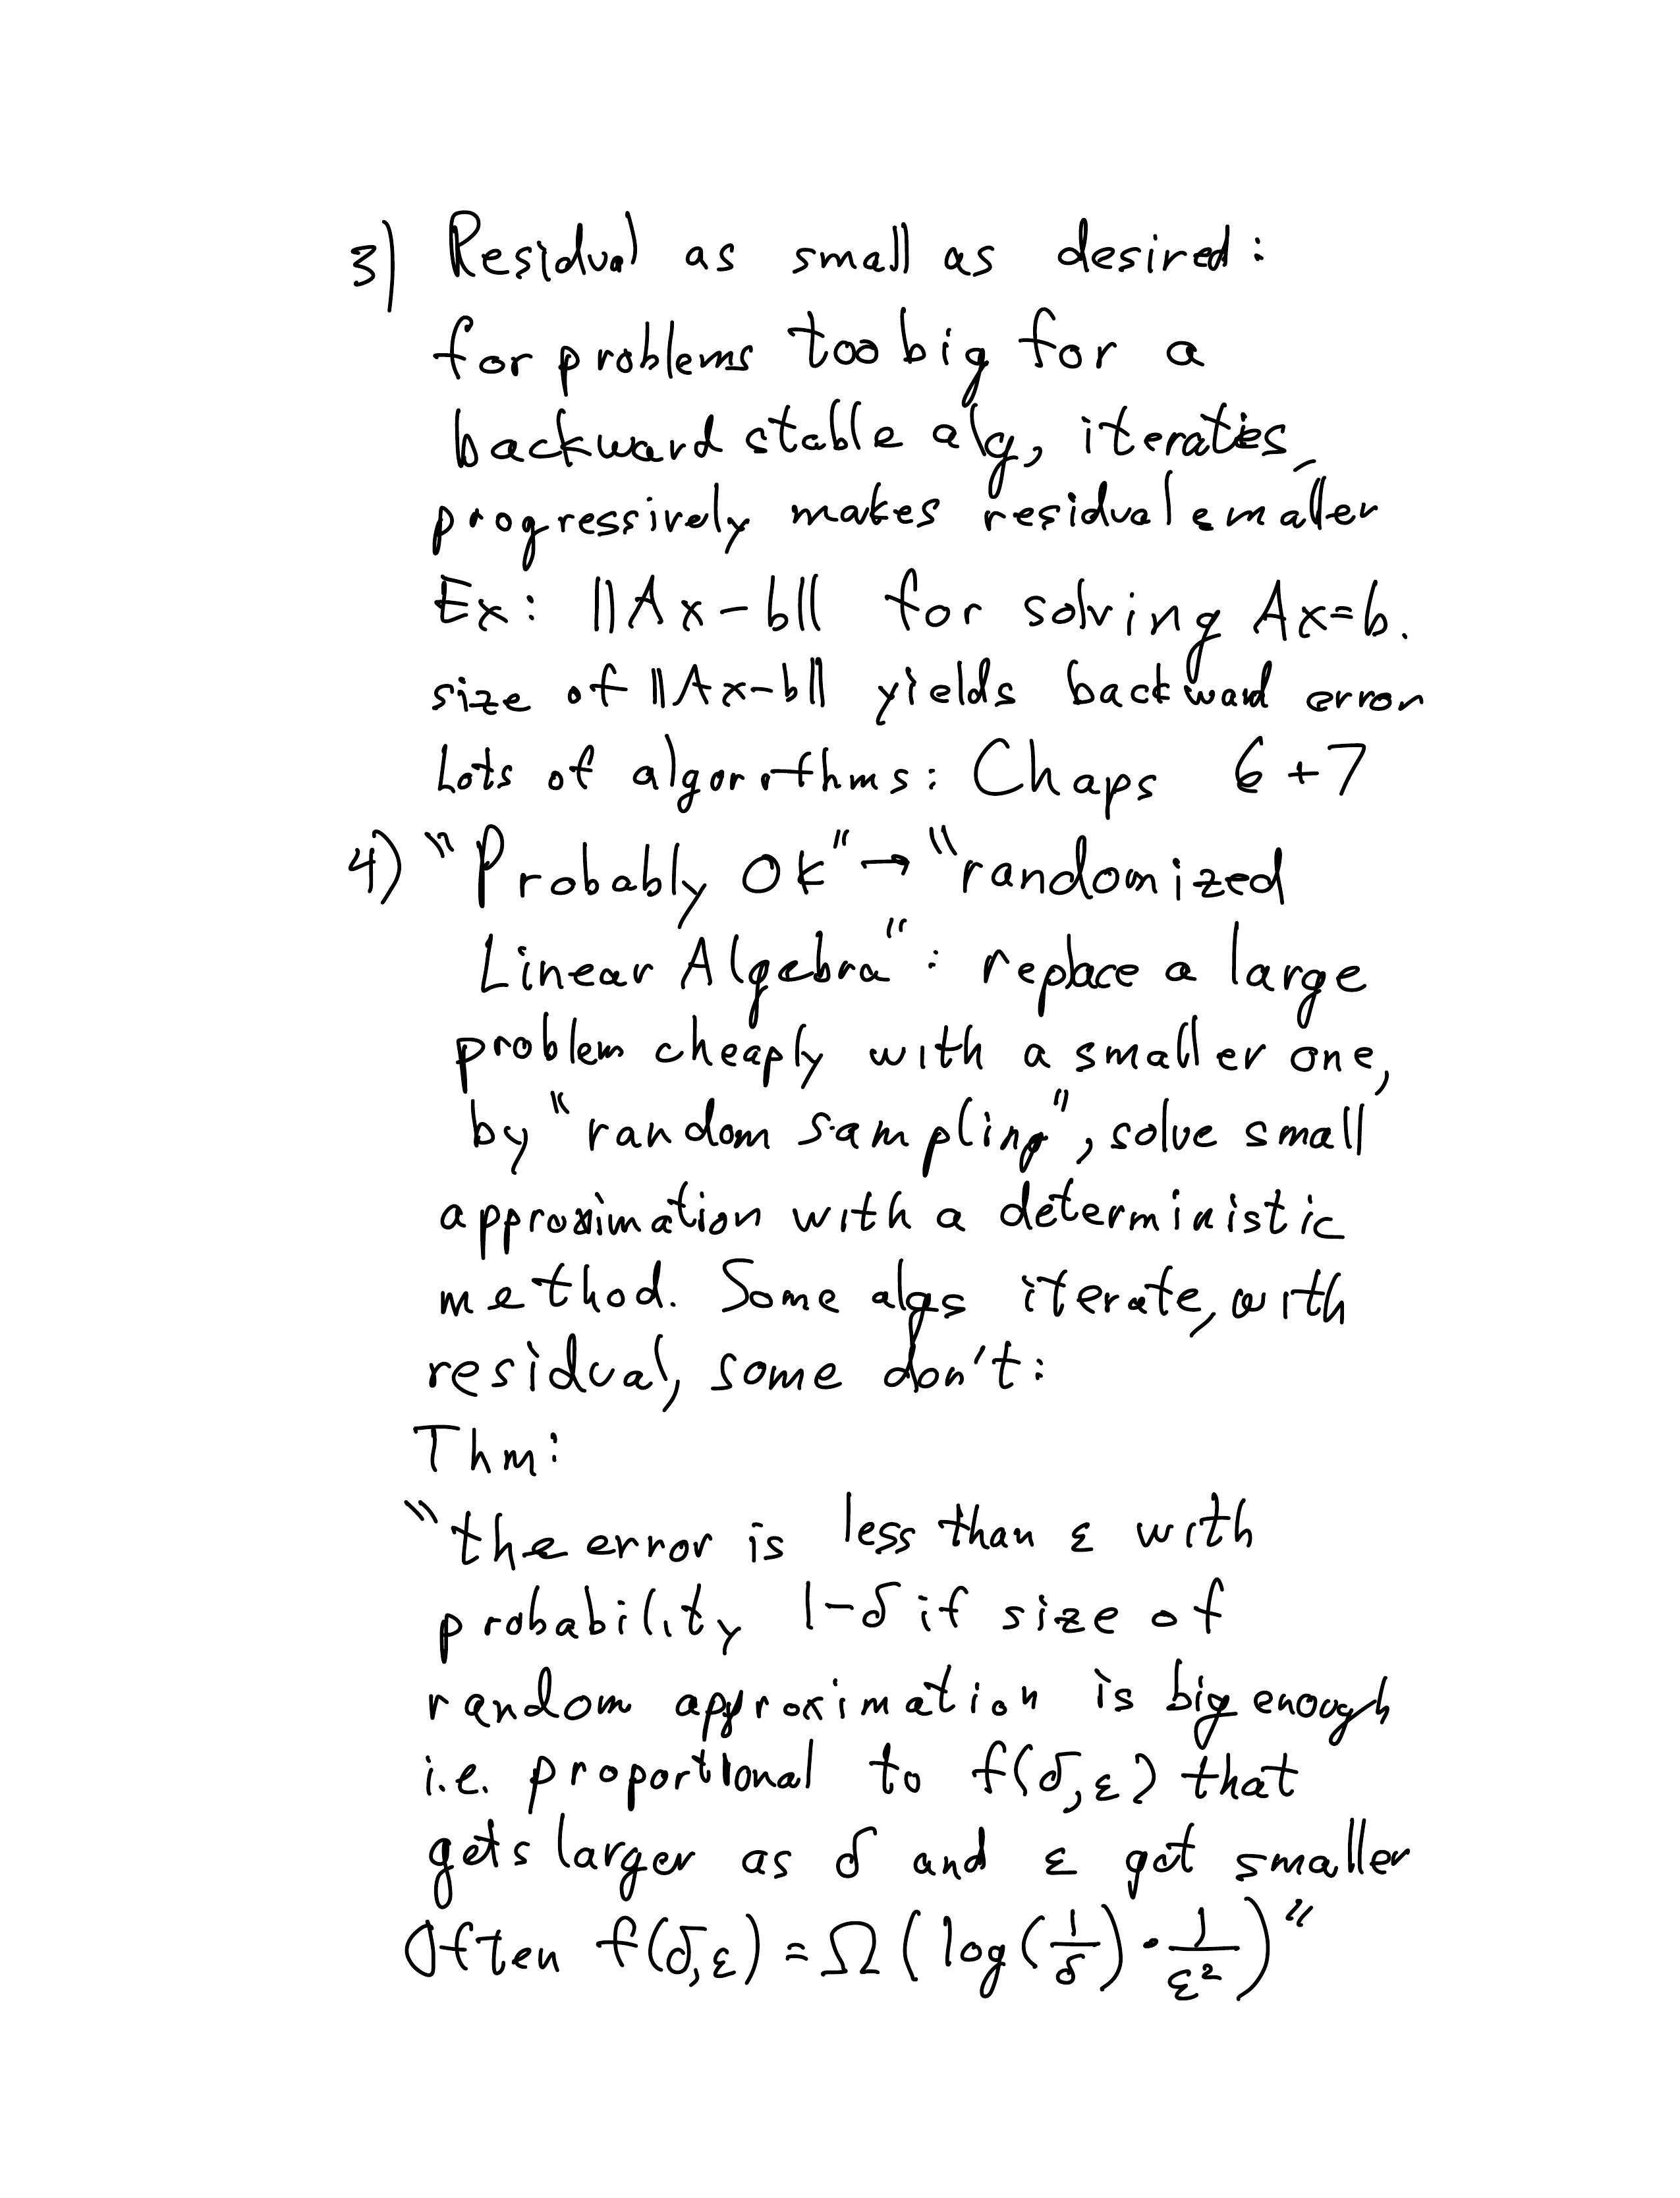 3) Residual as small as desired:
for problems too big for a
backward stable alg, iterates,
progressively makes residual smaller
Ex: ||Ax-b|| for solving Ax=b.
size of ||Ax-b|| yields backward error
Lots of algorithms: Chaps 6+7
4) "Probably OK" → "randomized
Linear Algebra": replace a large
problem cheaply with a smaller one,
by "random sampling", solve small
approximation with a deterministic
method. Some algs iterate, with
residual, some don't:
Thm:
"the error is less than ε with
probability 1-δ if size of
random approximation is big enough
i.e. proportional to f(δ,ε) that
gets larger as δ and ε get smaller
Often f(δ,ε) = Ω(log(1/δ)·1/ε²)"